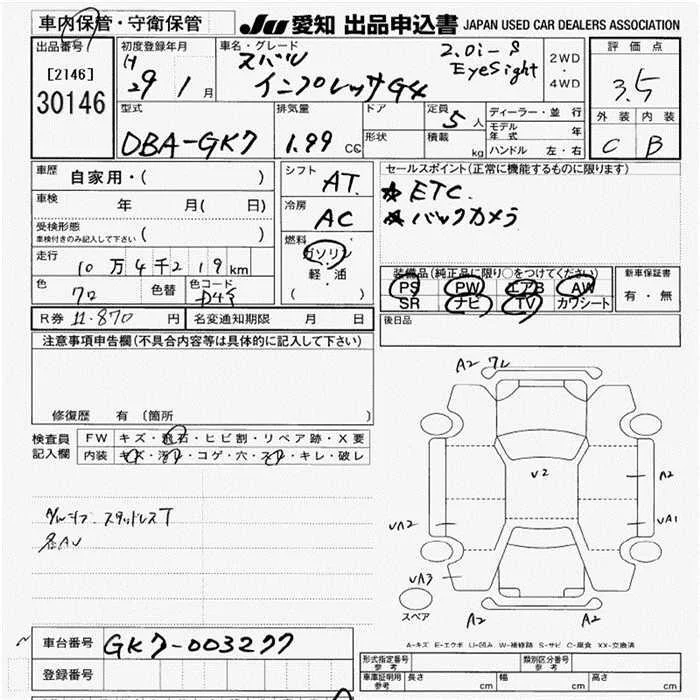 車内保管・守衛保管
JU 愛知 出品申込書 JAPAN USED CAR DEALERS ASSOCIATION
出品番号
[2146]
30146
初度登録年月
H
29 1 月
車名・グレード
スバル
インプレッサG4
2.0i-S
EyeSight
2WD
・
4WD
評価点
3.5
外装 内装
C B
型式
DBA-GK7
排気量
1.99 CC
ドア
形状
定員
5 人
積載
kg
ディーラー・並行
モデル年式 年
ハンドル 左・右
車歴
自家用・( )
車検
年 月( 日)
受検形態
車検付きのみ記入して下さい ( )
走行
10 万 4 千 2 1 9 km
色
クロ
色替
色コード
D4S
シフト
AT
冷房
AC
燃料
ガソリン
・
軽・油
( )
セールスポイント(正常に機能するものに限ります)
☆ ETC.
☆ バックカメラ
装備品(純正品に限り○をつけてください)
PS PW エアB AW
SR ナビ TV カワシート
新車保証書
有・無
R券 11.870 円
名変通知期限 月 日
後日品
注意事項申告欄(不具合内容等は具体的に記入して下さい)
修復歴 有 〔箇所 〕
検査員
記入欄
FW キズ・飛石・ヒビ割・リペア跡・X要
内装 キズ・汚れ・コゲ・穴・スレ・キレ・破レ
スタッドレスT
A2
V2
A2
VA2
VA1
VA3
スペア
A2
A2
A-キズ E-エクボ U-凹み W-補修跡 S-サビ C-腐食 XX-交換済
車台番号 GK7-003277
登録番号
形式指定番号
参考
類別区分番号
参考
車庫証明用
参考
長さ cm
幅 cm
高さ cm